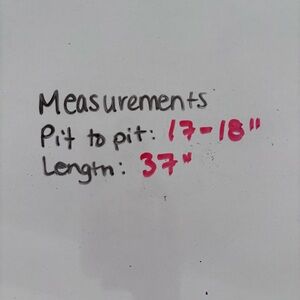 Measurements
Pit to pit: 17-18"
Length: 37"